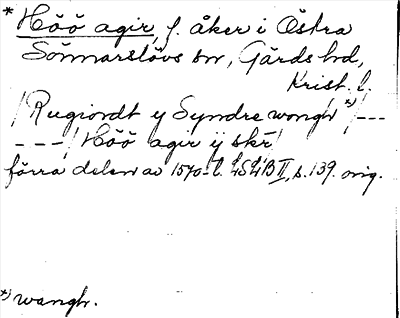 * Höö agir, f. åker i Östra
Sönnarslövs sn, Gärds hd,
Krist. l.
/Rugiordt y Syndre wongh *)/---
---/Höö agir ij skr/
förra delen av 1570-t. LSLB II, s. 139. orig.
*) wangh.